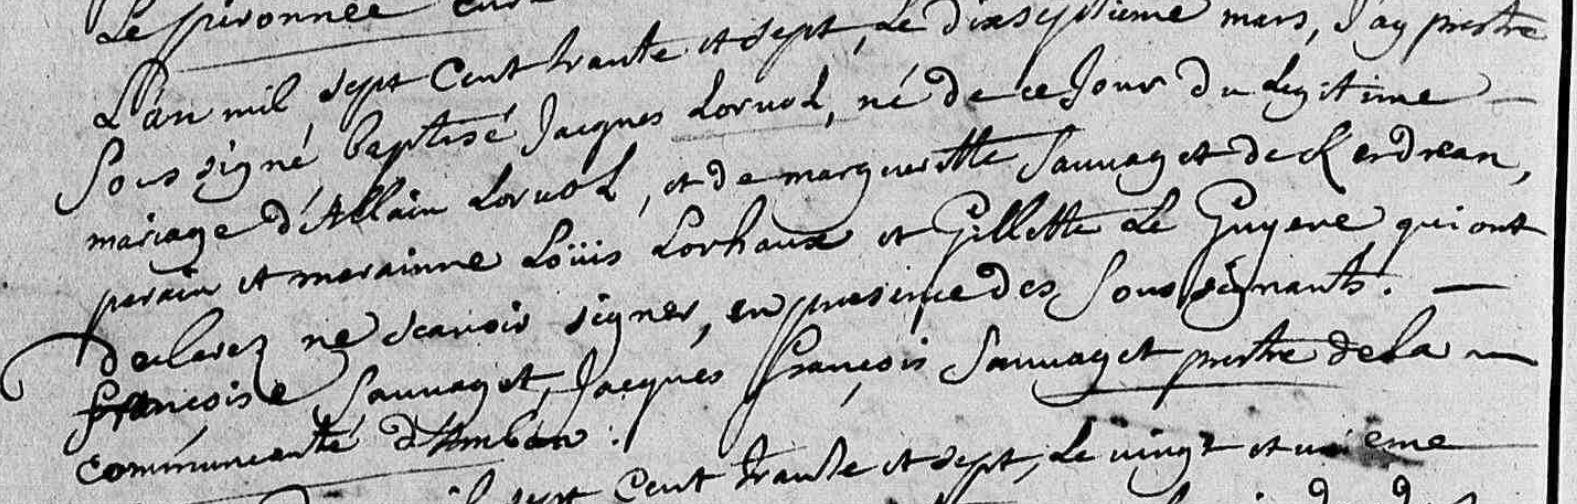 Le pironnée
L'an mil sept cent trante et sept, Le dixseptieme mars, J'ay prestre
Sous signé baptisé Jacques Lorvol, né de ce Jour du Legitime
mariage d'Allain Lorvol, et de margueritte Sauvaget de Kerdrean,
parain et marainne Loüis Lorhaux et Gillette Le Guyeve qui ont
declarez ne scavoir signer, en presence des Sous signants.
francoise Sauvaget, Jacques françois Sauvaget prestre de la
communeauté d'Ambon.
sept Cent trante et sept, Le vingt et unieme